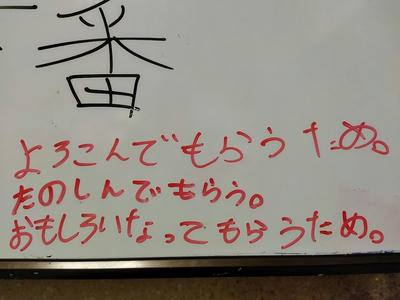 番
よろこんでもらうため。
たのしんでもらう。
おもしろいなってもらうため。